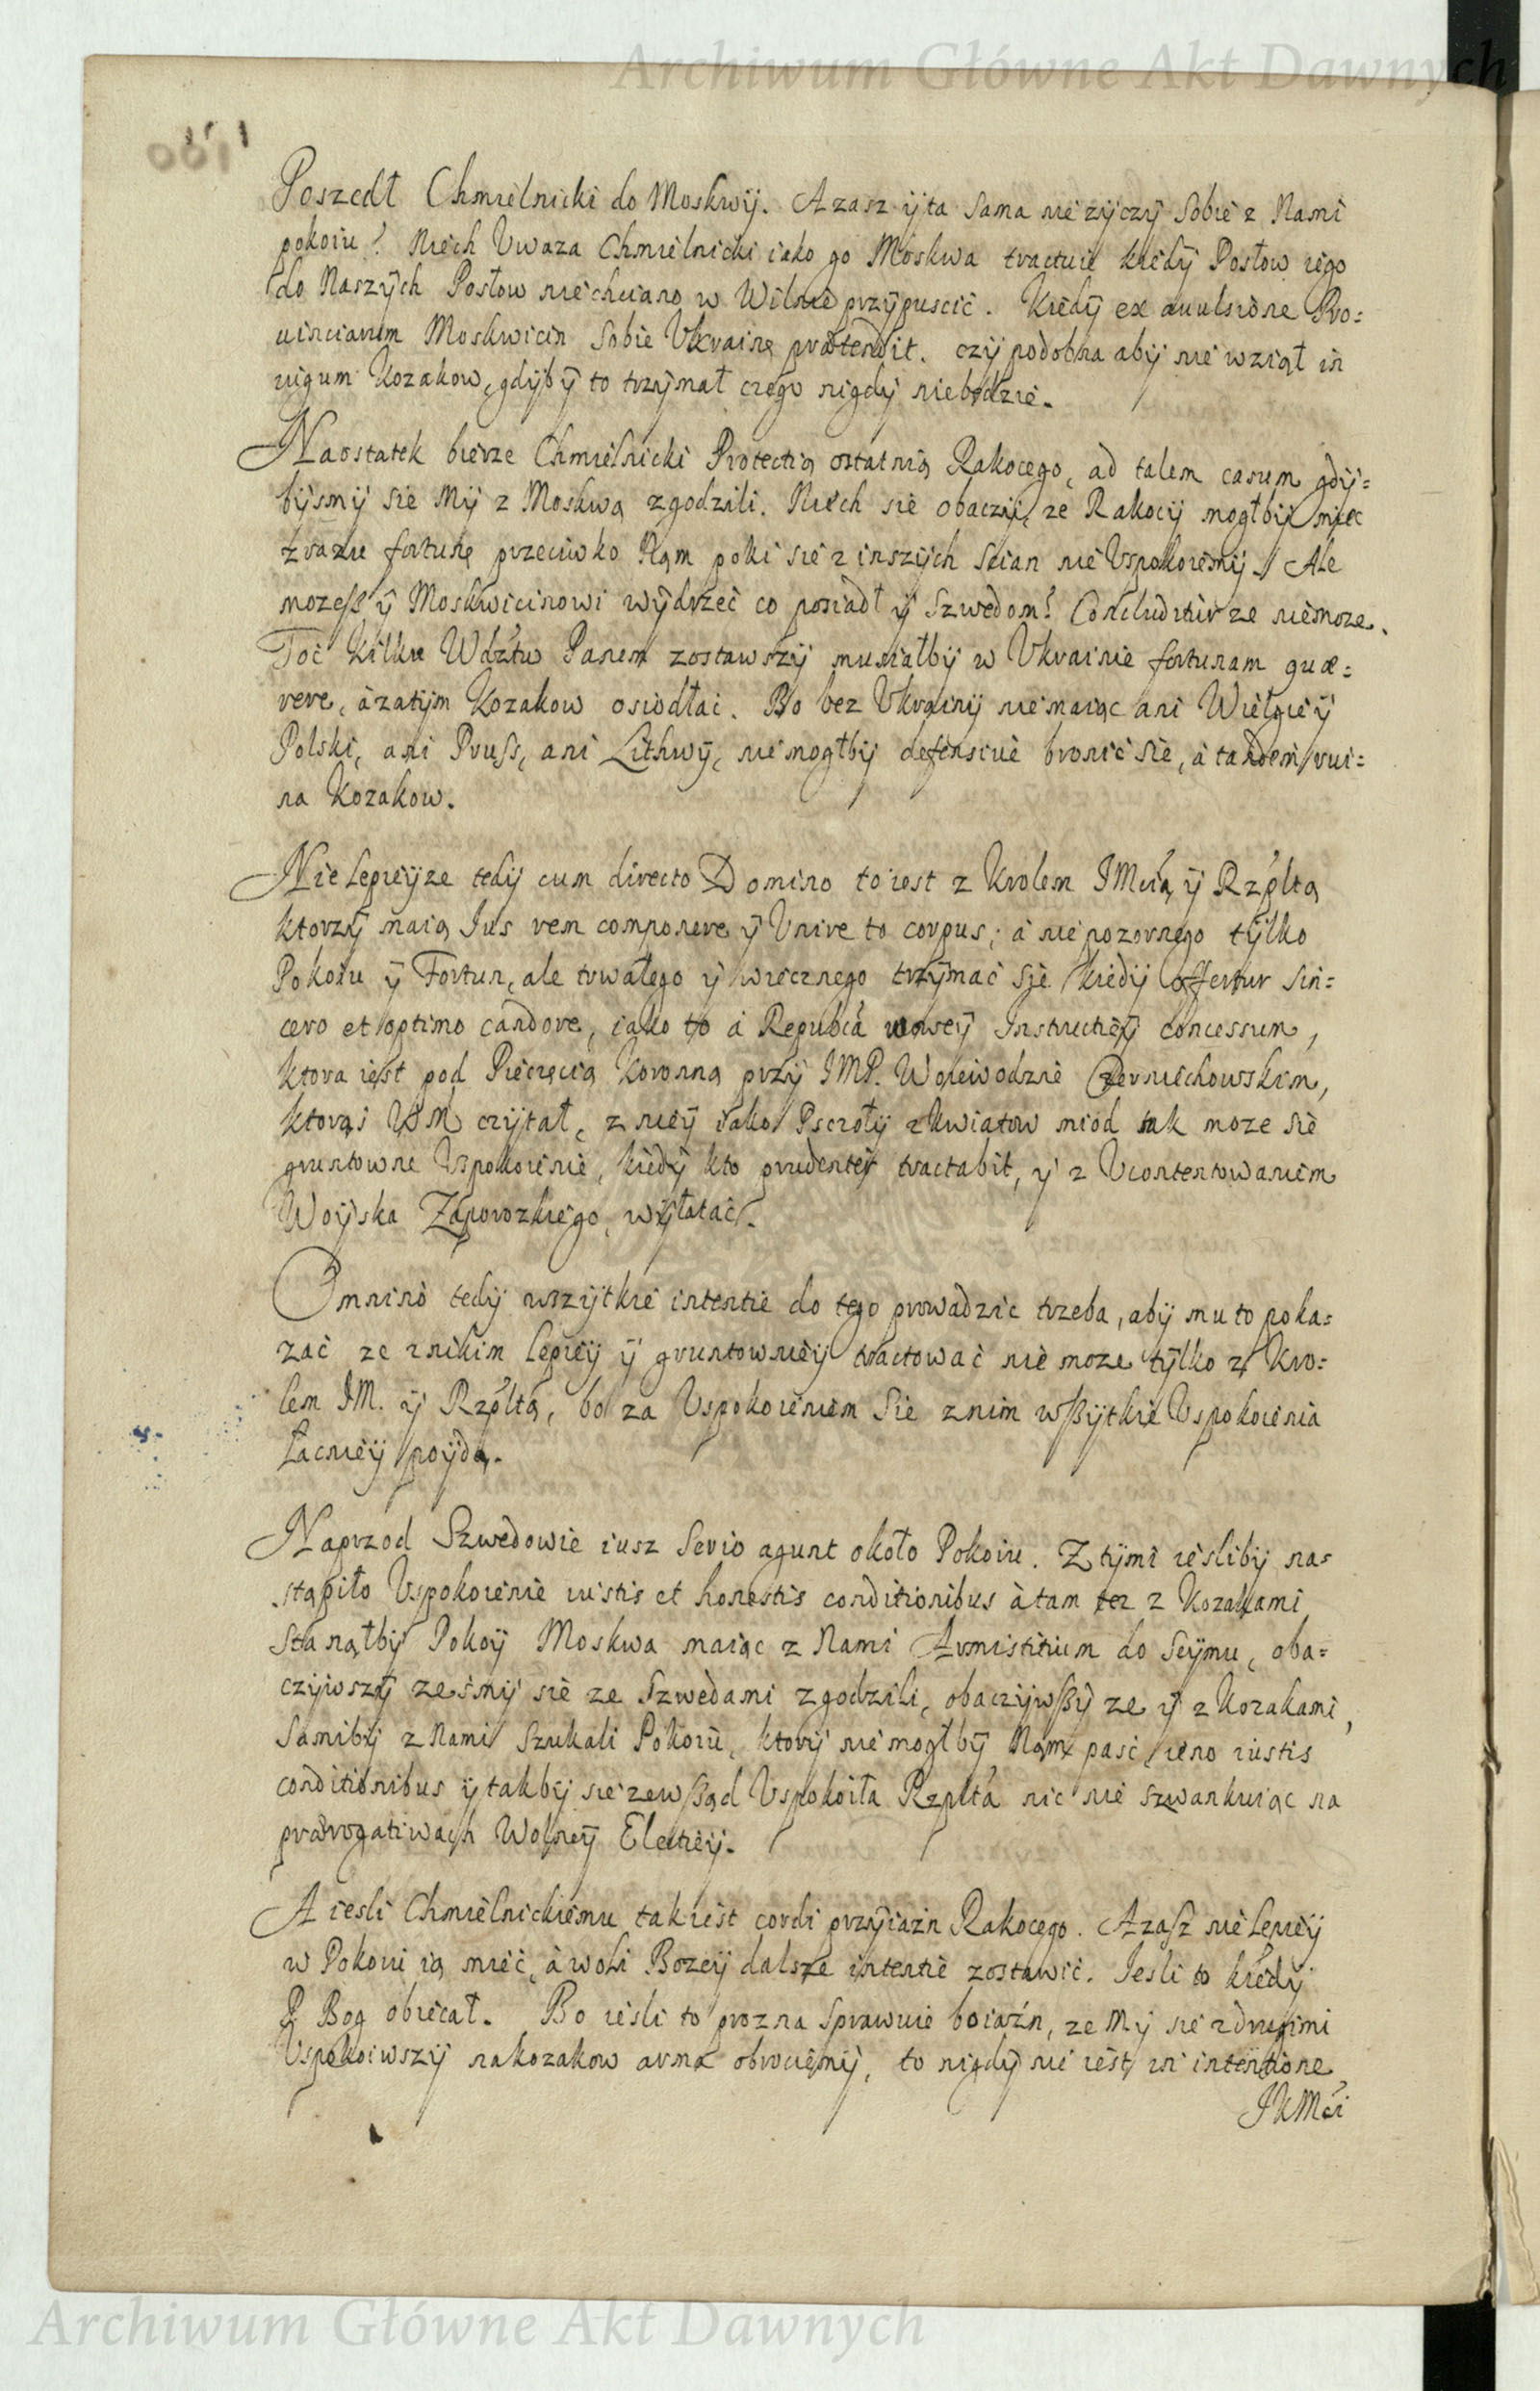 Archiwum Główne Akt Dawnych
Poszedł Chmielnicki do Moskwÿ. Azasz ÿ ta sama nie zÿczÿ sobie z Nami
pokoiu? Niech Vwaza Chmielnicki iako go Moskwa tractuie kiedÿ Posłow iego
do Naszÿch Posłow niechciano w Wilnie przÿpuscić. Kiedÿ ex auulsione Pro=
uinciarum Moskwicin sobie Vkrainę prætendit. czÿ podobna abÿ nie wziął in
iugum Kozakow, gdÿbÿ to trzÿmał czego nigdÿ niebędzie.
Naostatek bierze Chmielnicki Protectią ostatnią Rakocego, ad talem casum gdÿ=
bÿsmÿ sie Mÿ z Moskwą zgodzili. Niech sie obaczÿ, ze Rakocÿ mogłbÿ miec
zrazu fortunę przeciwko Nam poki sie z inszÿch scian nie Vspokoiemÿ. Ale
mozeß ÿ Moskwicinowi wÿdrzeć co posiadł ÿ Szwedom? Concluditur ze niemoze.
Toć kilku Wdztw Panem zostawszÿ musiałbÿ w Vkrainie fortunam quæ=
rere, à zatÿm Kozakow osiodłać. Bo bez Vkrainÿ niemaiąc ani Wielgieÿ
Polski, ani Pruss, ani Lithwÿ, niemogłbÿ defensiuè bronić sie, à tandem rui=
na Kozakow.
Nie lepieÿze tedÿ cum directo Domino to iest z Krolem IMcią ÿ Rzpltą
ktorzÿ maią Ius rem componere ÿ Vnire to corpus; à nie pozornego tÿlko
Pokoiu ÿ Fortun, ale trwałego ÿ wiecznego trzÿmać sie kiedÿ offertur sin=
cero et optimo candore, iako to à Republcâ wnseÿ Instructieÿ concessum,
ktora iest pod Pieczęcią Koronną przÿ IMP. Woiewodzie Czerniechowskim,
ktorąs WM czÿtał, z nieÿ iako Psczołÿ z kwiatow miod tak moze sie
gruntowne Vspokoienie, kiedÿ kto prudenter tractabit, ÿ z Vcontentowaniem
Woÿska Zaporozkiego, wÿłatać.
Omninò tedÿ wszÿtkie intentie do tego prowadzic trzeba, abÿ mu to poka=
zać ze z nikim lepieÿ ÿ gruntownieÿ tractować nie moze tÿlko z Kro=
lem IM. ÿ Rzpltą, bo za Vspokoieniem sie z nim wßÿtkie Vspokoienia
łacnieÿ poÿdą.
Naprzod Szwedowie iusz serio agunt około Pokoiu. Z tÿmi ieslibÿ na=
stąpiło Vspokoienie iustis et honestis conditionibus à tam tez z Kozakami
stanąłbÿ Pokoÿ Moskwa maiąc z Nami Armistitium do Seÿmu, oba=
czÿwszÿ zesmÿ sie ze Szwedami zgodzili, obaczÿwßÿ ze ÿ z Kozakami,
samibÿ z Nami szukali Pokoiu, ktorÿ niemogłbÿ Nam paść ieno iustis
conditionibus ÿ takbÿ sie zewßąd Vspokoiła Rzplta nic nie szwankuiąc na
prærogatiwach Wolneÿ Electieÿ.
A iesli Chmielnickiemu tak iest cordi przÿiazn Rakocego. Azaß nie lepieÿ
w Pokoiu ią mieć, à woli Bozeÿ dalsze intentie zostawić. Iesli to kiedÿ
P. Bog obiecał. Bo iesli to prozna sprawuie boiaźn, ze Mÿ sie z drugimi
Vspokoiwszÿ na kozakow arma obrociemÿ, to nigdÿ nie iest in intentione
IKMci
Archiwum Główne Akt Dawnych